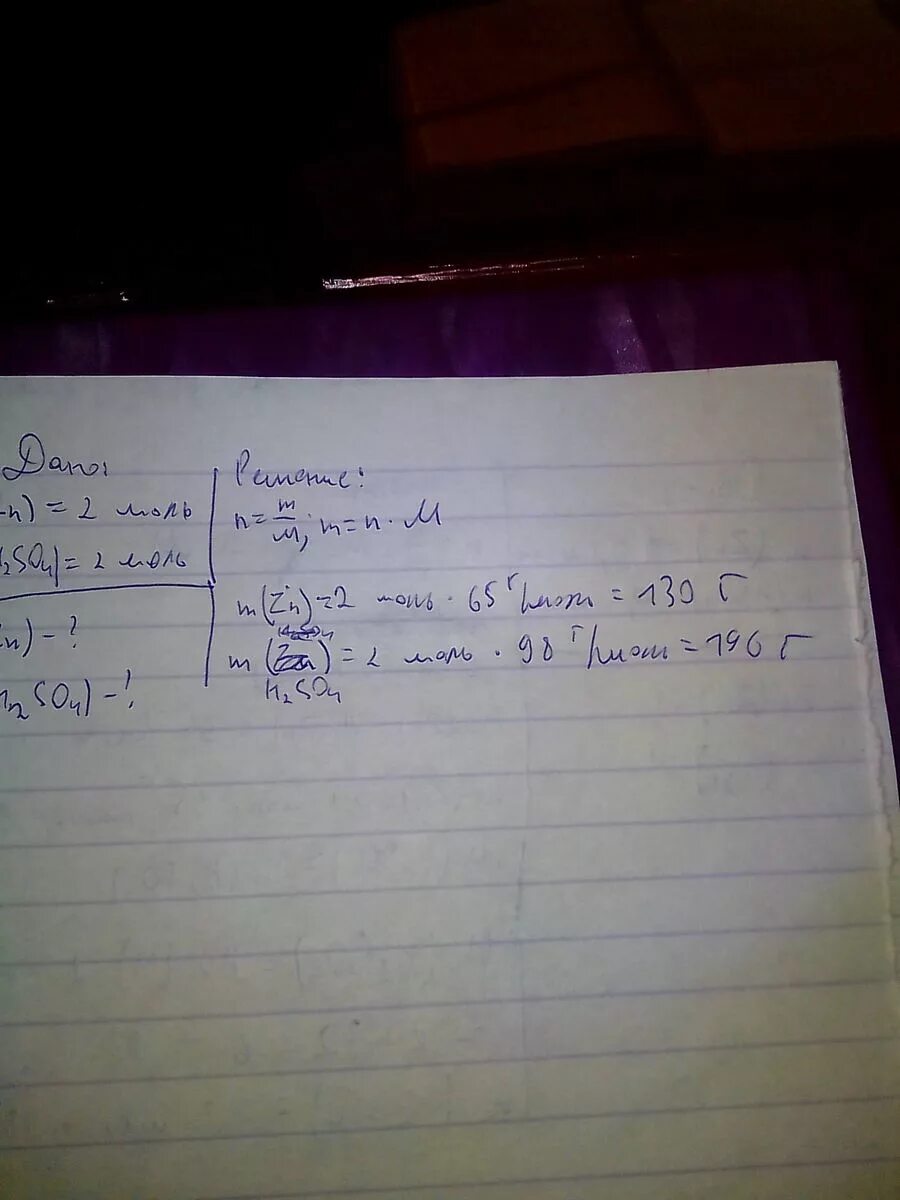 Дано:
n) = 2 моль
2SO4) = 2 моль
n) - ?
H2SO4) - ?
Решение:
n = m/M; m = n · M
m(Zn) = 2 моль · 65 г/моль = 130 г
m(H2SO4) = 2 моль · 98 г/моль = 196 г